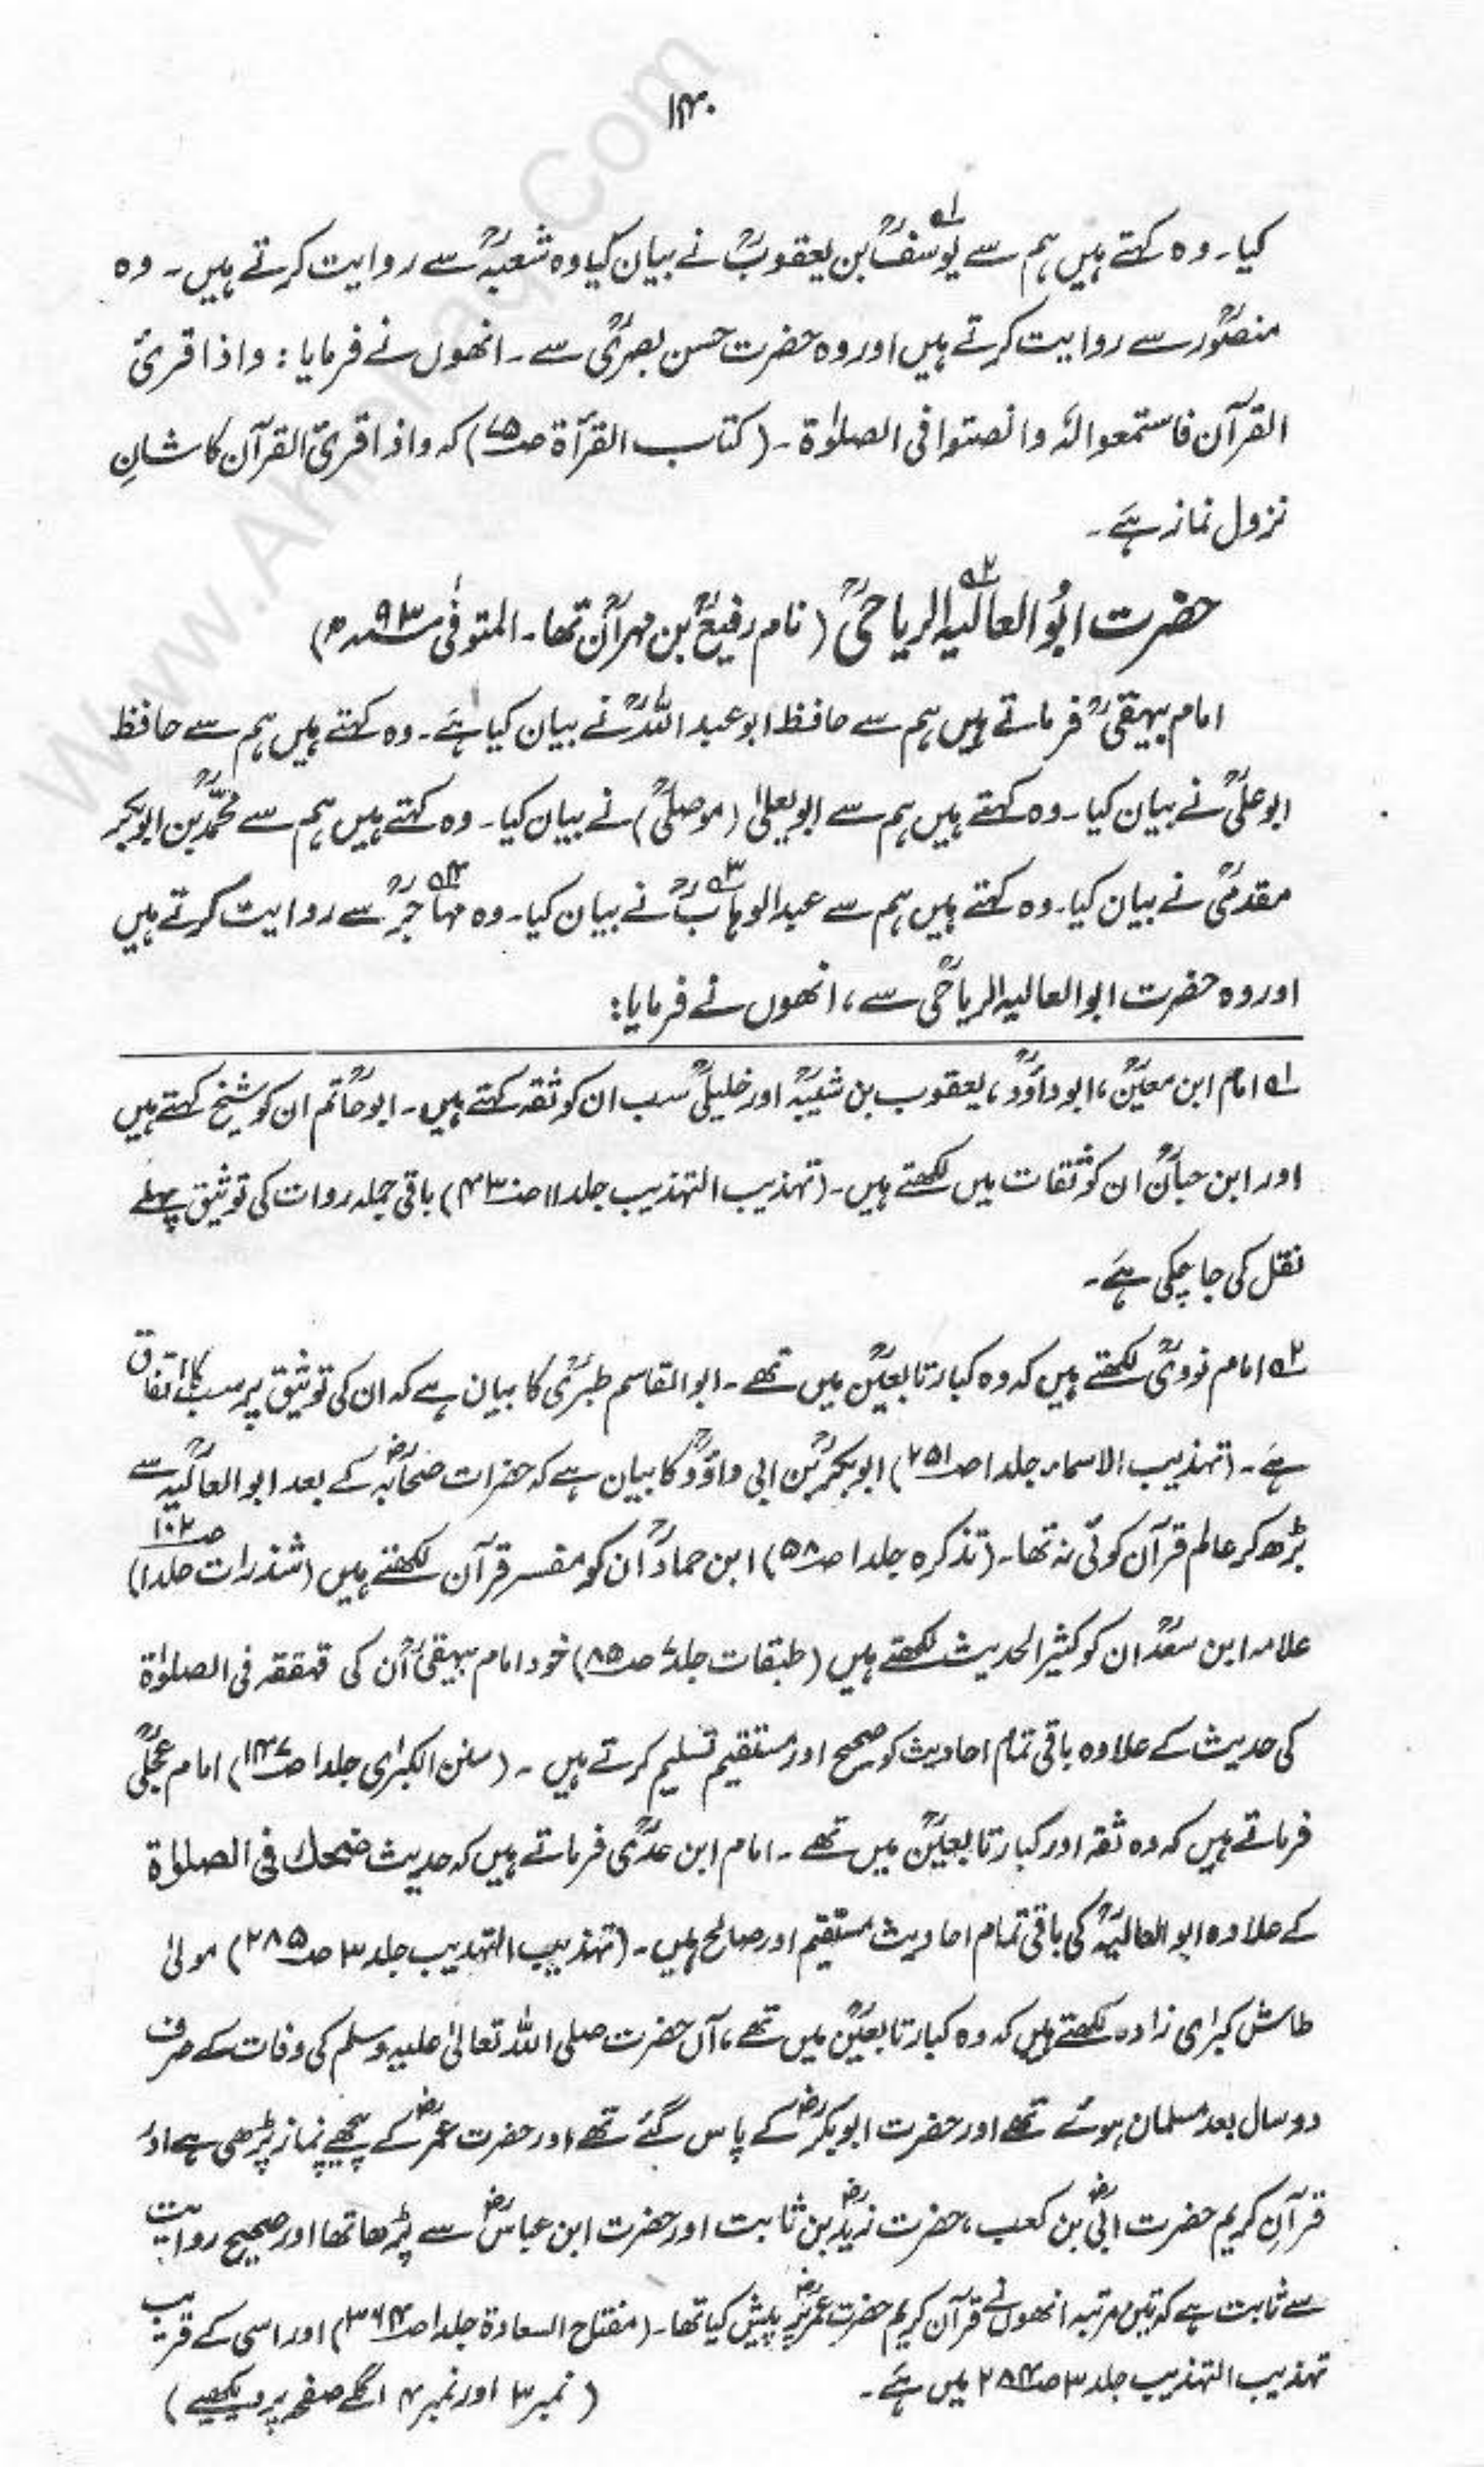 ۱۴۰
کیا۔ وہ کہتے ہیں ہم سے یوسفؒ۱؎ بن یعقوبؒ نے بیان کیا وہ شعبہؒ سے روایت کرتے ہیں۔ وہ
منصورؒ سے روایت کرتے ہیں اور وہ حضرت حسن بصریؒ سے۔ انھوں نے فرمایا: واذا قرئ
القرآن فاستمعوا لہٗ وانصتوا فی الصلوٰۃ۔ (کتاب القرأۃ ص۷۵) کہ واذا قرئ القرآن کا شانِ
نزول نماز ہے۔
حضرت ابُو العالیہ۲؎ الریاحیؒ (نام رفیعؒ بن مہرانؒ تھا۔ المتوفّٰی ۹۳ھ)
امام بیہقیؒ فرماتے ہیں ہم سے حافظ ابوعبداللہؒ نے بیان کیا ہے۔ وہ کہتے ہیں ہم سے حافظ
ابوعلیؒ نے بیان کیا۔ وہ کہتے ہیں ہم سے ابویعلیٰ (موصلیؒ) نے بیان کیا۔ وہ کہتے ہیں ہم سے محمدؒ بن ابوبکر
مقدمیؒ نے بیان کیا۔ وہ کہتے ہیں ہم سے عبدالوہابؒ۳؎ نے بیان کیا۔ وہ مہاجرؒ۴؎ سے روایت کرتے ہیں
اور وہ حضرت ابوالعالیہ الریاحیؒ سے، انھوں نے فرمایا:
۱؎ امام ابن معینؒ، ابوداؤدؒ، یعقوب بن شیبہؒ اور خلیلیؒ سب ان کو ثقہ کہتے ہیں۔ ابوحاتمؒ ان کو شیخ کہتے ہیں
اور ابن حبانؒ ان کو ثقات میں لکھتے ہیں۔ (تہذیب التہذیب جلد ۱۱ ص۴۳۰) باقی جملہ روات کی توثیق پہلے
نقل کی جا چکی ہے۔
۲؎ امام نوویؒ لکھتے ہیں کہ وہ کبار تابعینؒ میں تھے۔ ابوالقاسم طبریؒ کا بیان ہے کہ ان کی توثیق پر سب کا اتفاق
ہے۔ (تہذیب الاسماء جلد ۱ ص۲۵۱) ابوبکرؒ بن ابی داؤدؒ کا بیان ہے کہ حضرات صحابہؓ کے بعد ابوالعالیہؒ سے
بڑھ کر عالم قرآن کوئی نہ تھا۔ (تذکرہ جلد ۱ ص۵۸) ابن حمادؒ ان کو مفسر قرآن لکھتے ہیں (شذرات جلد ۱ ص۱۰۲)
علامہ ابن سعدؒ ان کو کثیر الحدیث لکھتے ہیں (طبقات جلد ۷ ص۸۵) خود امام بیہقیؒ اُن کی قہقہہ فی الصلوٰۃ
کی حدیث کے علاوہ باقی تمام احادیث کو صحیح اور مستقیم تسلیم کرتے ہیں۔ (سنن الکبرٰی جلد ۱ ص۱۴۷) امام عجلیؒ
فرماتے ہیں کہ وہ ثقہ اور کبار تابعینؒ میں تھے۔ امام ابن عدیؒ فرماتے ہیں کہ حدیث ضحک فی الصلوٰۃ
کے علاوہ ابوالعالیہؒ کی باقی تمام احادیث مستقیم اور صالح ہیں۔ (تہذیب التہذیب جلد ۳ ص۲۸۵) مولیٰ
طاش کبرٰی زادہ لکھتے ہیں کہ وہ کبار تابعینؒ میں تھے، آں حضرت صلی اللہ تعالیٰ علیہ وسلم کی وفات کے صرف
دو سال بعد مسلمان ہوئے تھے اور حضرت ابوبکرؓ کے پاس گئے تھے اور حضرت عمرؓ کے پیچھے نماز پڑھی ہے اور
قرآنِ کریم حضرت ابیؓ بن کعب، حضرت زیدؓ بن ثابت اور حضرت ابن عباسؓ سے پڑھا تھا اور صحیح روایت
سے ثابت ہے کہ تین مرتبہ انھوں نے قرآن کریم حضرت عمرؓ پر پیش کیا تھا۔ (مفتاح السعادۃ جلد ۱ ص۳۶۴) اور اسی کے قریب
تہذیب التہذیب جلد ۳ ص۲۸۴ میں ہے۔ (نمبر ۳ اور نمبر ۴ اگلے صفحہ پر دیکھیے)